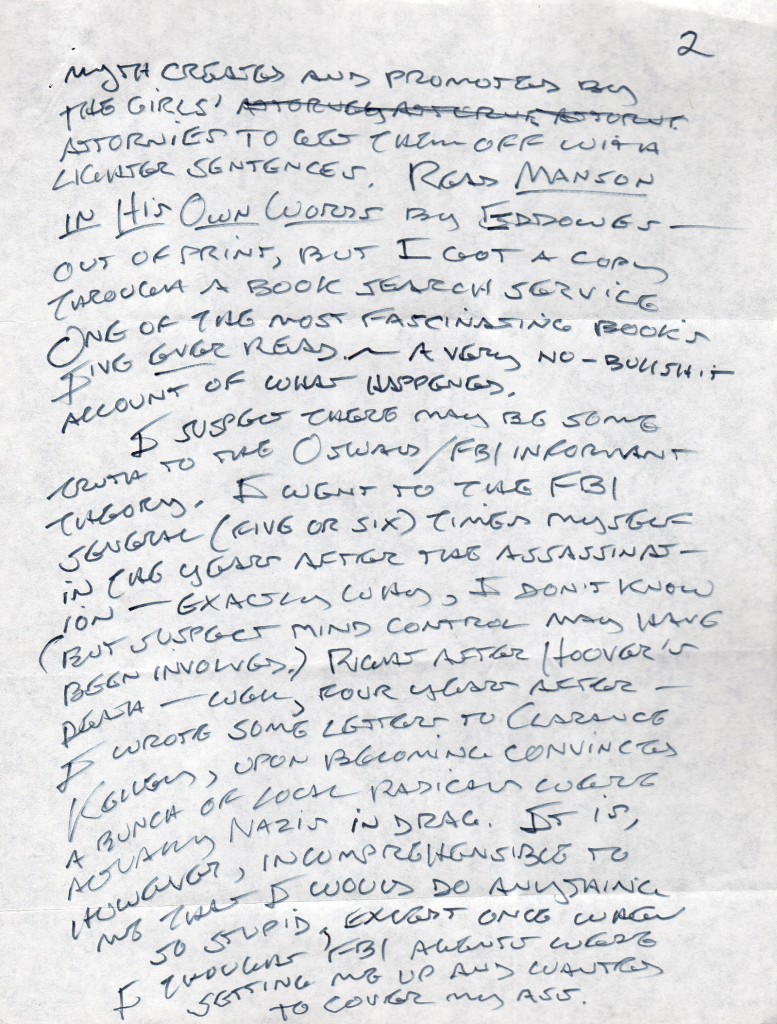 2
MYTH CREATED AND PROMOTED BY
THE GIRLS' ATTORNEY ATTORNE ATTORNE
ATTORNIES TO GET THEM OFF WITH
LIGHTER SENTENCES. READ MANSON
IN HIS OWN WORDS BY EDDOWES —
OUT OF PRINT, BUT I GOT A COPY
THROUGH A BOOK SEARCH SERVICE
ONE OF THE MOST FASCINATING BOOKS
I'VE EVER READ. — A VERY NO-BULLSHIT
ACCOUNT OF WHAT HAPPENED.
I SUSPECT THERE MAY BE SOME
TRUTH TO THE OSWALD/FBI INFORMANT
THEORY. I WENT TO THE FBI
SEVERAL (FIVE OR SIX) TIMES MYSELF
IN THE YEARS AFTER THE ASSASSINAT-
ION — EXACTLY WHY, I DON'T KNOW
(BUT SUSPECT MIND CONTROL MAY HAVE
BEEN INVOLVED.) RIGHT AFTER HOOVER'S
DEATH — WELL, FOUR YEARS AFTER —
I WROTE SOME LETTERS TO CLARANCE
KELLEY, UPON BECOMING CONVINCED
A BUNCH OF LOCAL RADICALS WERE
ACTUALLY NAZIS IN DRAG. IT IS,
HOWEVER, INCOMPREHENSIBLE TO
ME THAT I WOULD DO ANYTHING
SO STUPID, EXCEPT ONCE WHEN
I THOUGHT FBI AGENTS WERE
SETTING ME UP AND WANTED
TO COVER MY ASS.